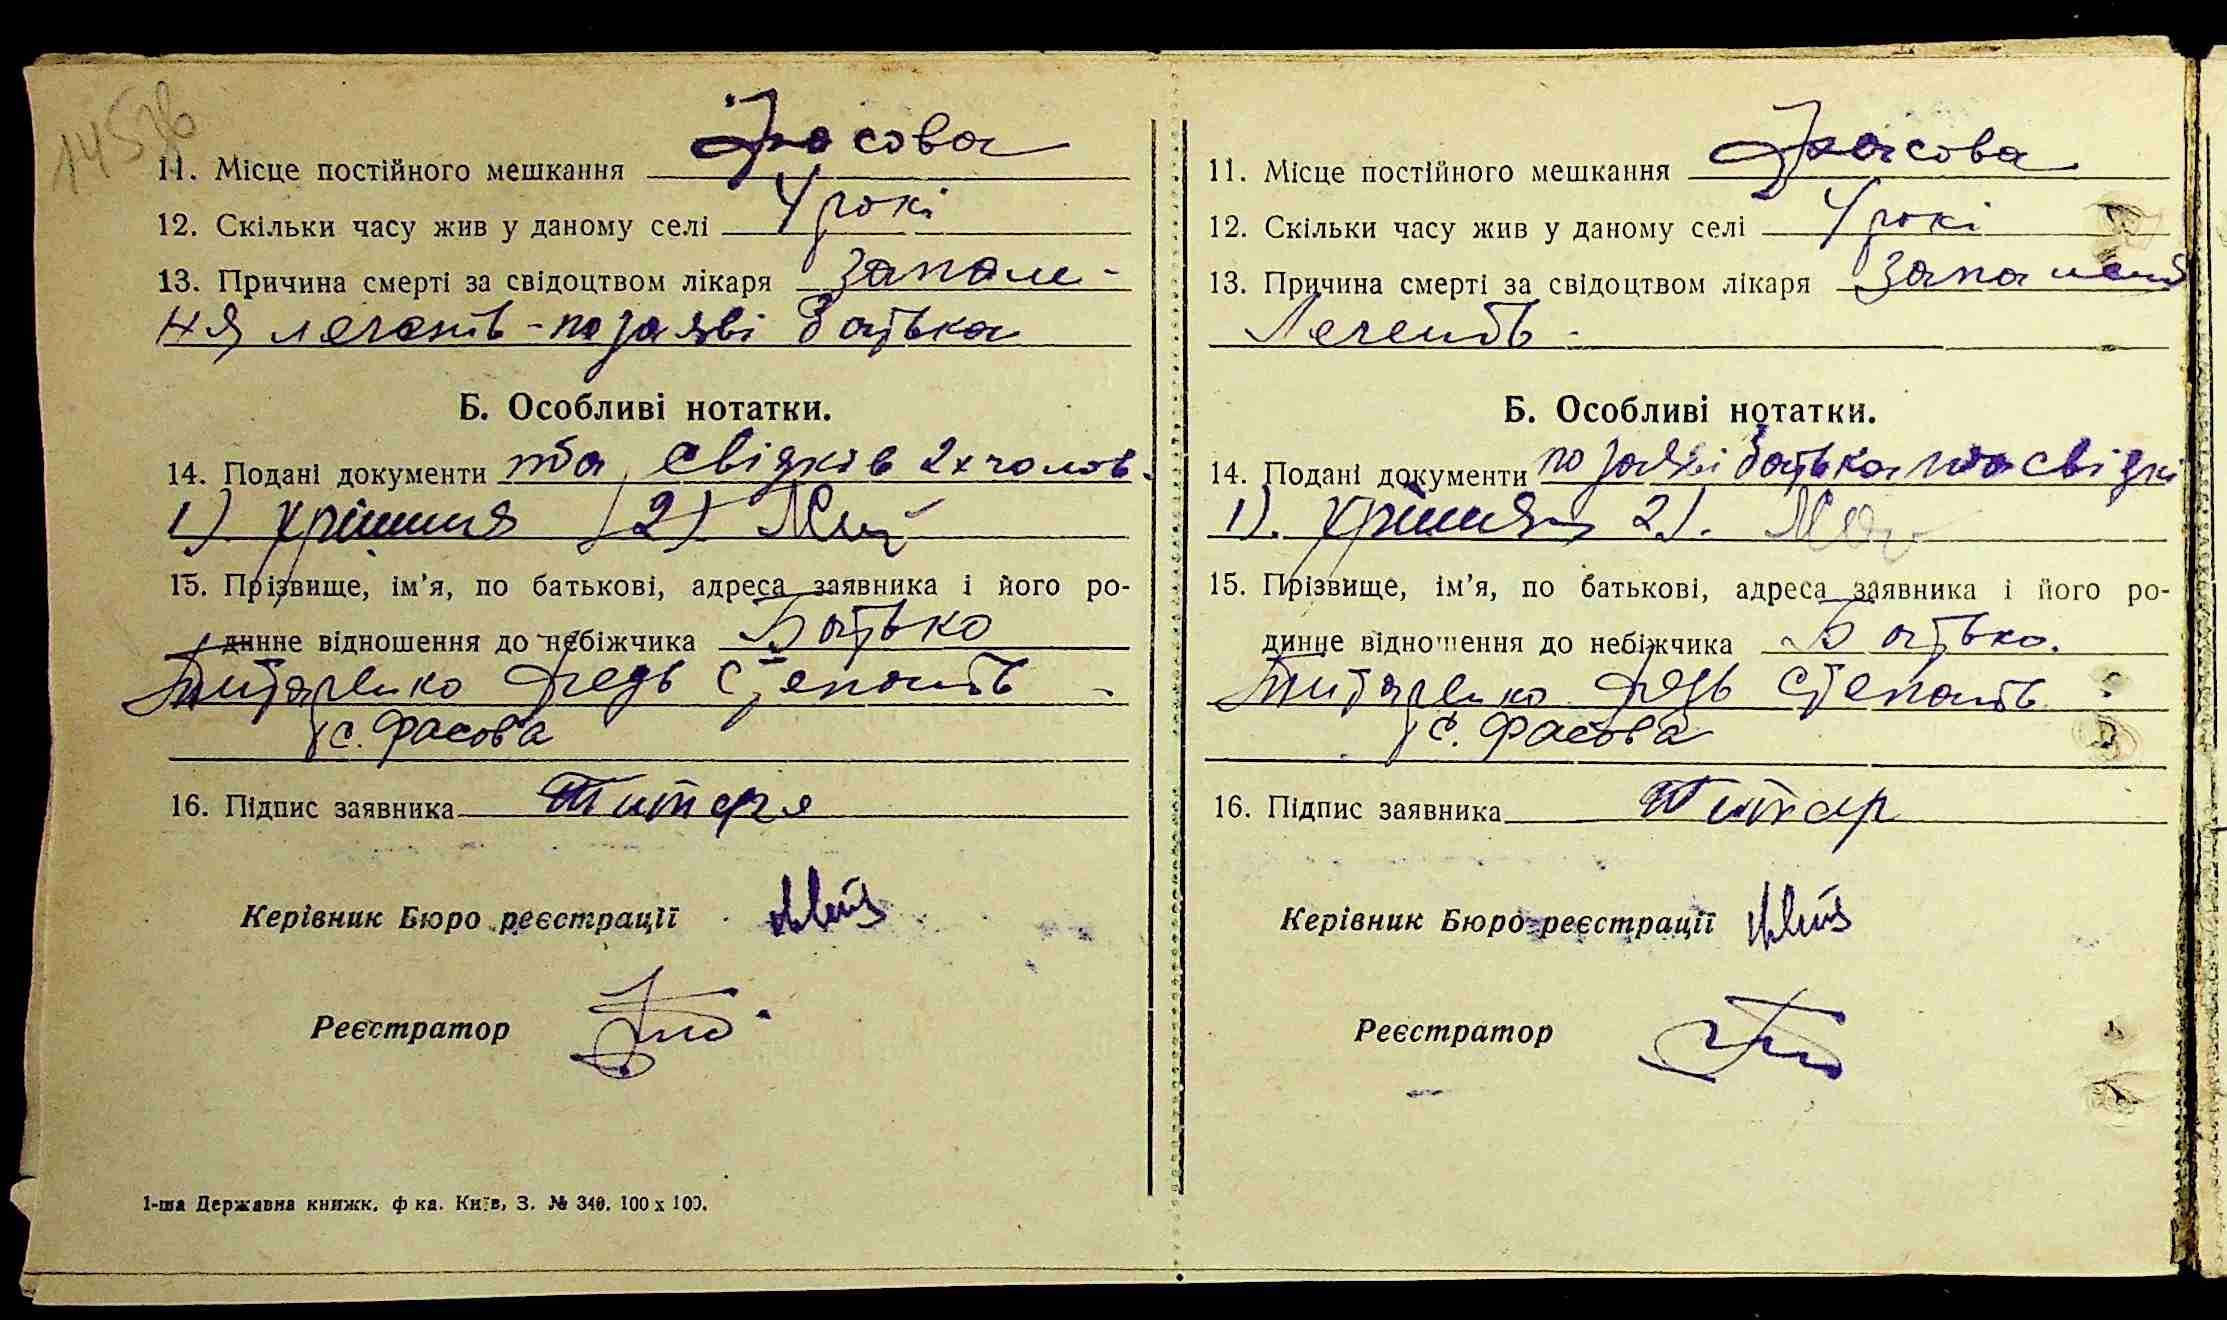 145
11. Місце постійного мешкання Фасова
12. Скільки часу жив у даному селі 4 рокі
13. Причина смерті за свідоцтвом лікаря Запале-
ня легенів - по заяві батька
Б. Особливі нотатки.
14. Подані документи та свідків 2х чолов.
1) 2)
15. Прізвище, ім'я, по батькові, адреса заявника і його ро-
динне відношення до небіжчика Батько
Титаренко Федь Степанов
с. Фасова
16. Підпис заявника Титаре
Керівник Бюро реєстрації
Реєстратор
1-ша Державна книжк. ф ка. Київ, З. № 340. 100 х 100.
11. Місце постійного мешкання Фасова
12. Скільки часу жив у даному селі 4 рокі
13. Причина смерті за свідоцтвом лікаря Запаленя
Легенів -
Б. Особливі нотатки.
14. Подані документи по заяві батька та свідкі
1). 2).
15. Прізвище, ім'я, по батькові, адреса заявника і його ро-
динне відношення до небіжчика Батько.
Титаренко Федь Степанов
с. Фасова
16. Підпис заявника Титар
Керівник Бюро реєстрації
Реєстратор